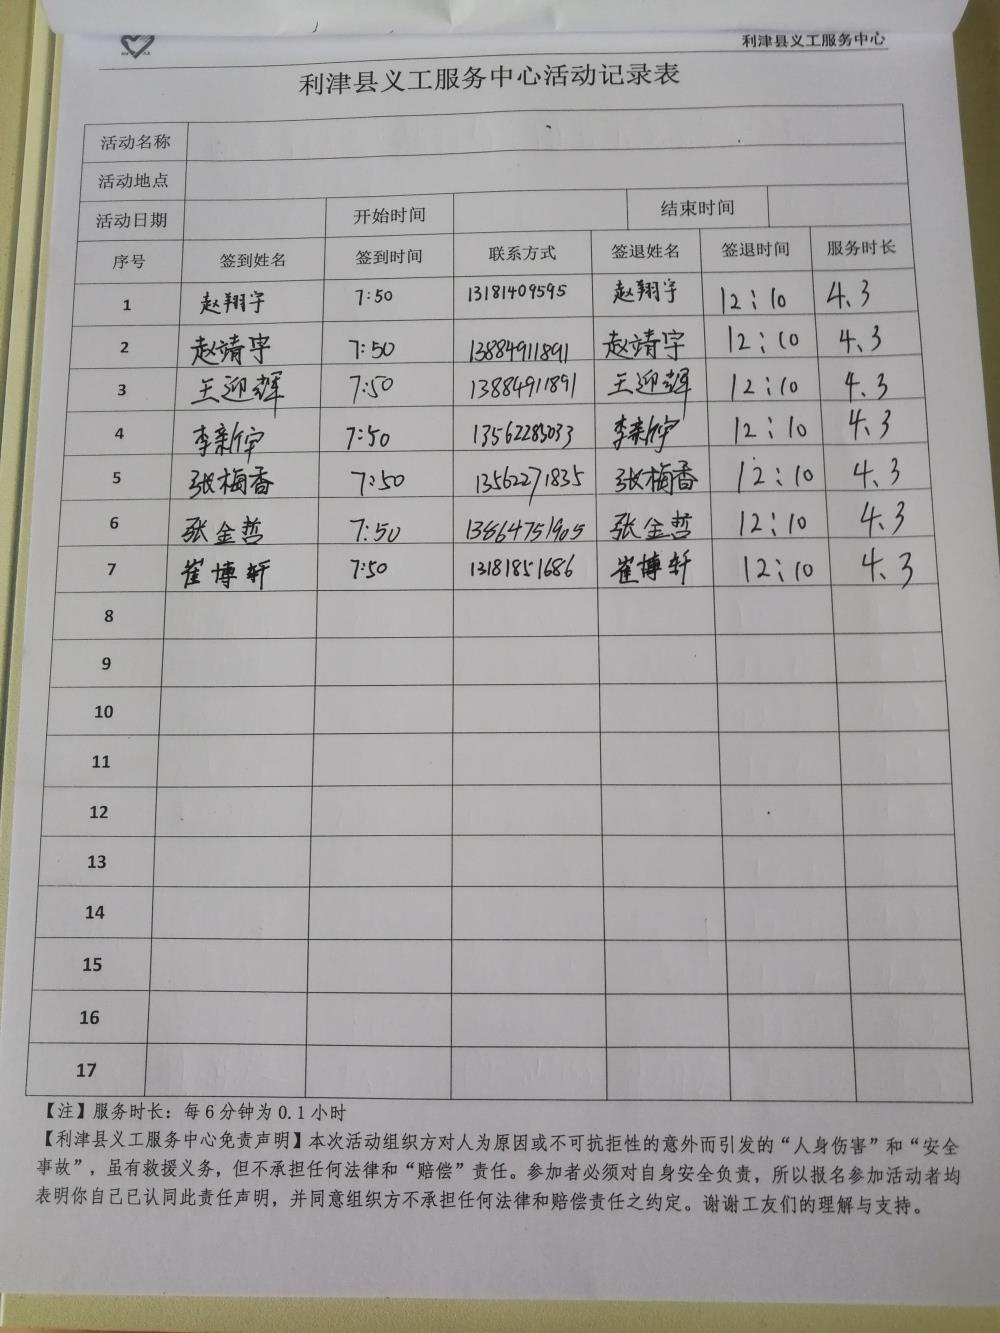 利津县义工服务中心
利津县义工服务中心活动记录表
活动名称
活动地点
活动日期 开始时间 结束时间
序号 签到姓名 签到时间 联系方式 签退姓名 签退时间 服务时长
1 赵翔宇 7:50 13181409595 赵翔宇 12:10 4.3
2 赵靖宇 7:50 13884911891 赵靖宇 12:10 4.3
3 王迎辉 7:50 13884911891 王迎辉 12:10 4.3
4 李新宇 7:50 13562283033 李新宇 12:10 4.3
5 张梅香 7:50 13562271835 张梅香 12:10 4.3
6 张金哲 7:50 13864751905 张金哲 12:10 4.3
7 崔博轩 7:50 13181851686 崔博轩 12:10 4.3
8
9
10
11
12
13
14
15
16
17
【注】服务时长：每6分钟为0.1小时
【利津县义工服务中心免责声明】本次活动组织方对人为原因或不可抗拒性的意外而引发的“人身伤害”和“安全
事故”，虽有救援义务，但不承担任何法律和“赔偿”责任。参加者必须对自身安全负责，所以报名参加活动者均
表明你自己已认同此责任声明，并同意组织方不承担任何法律和赔偿责任之约定。谢谢工友们的理解与支持。